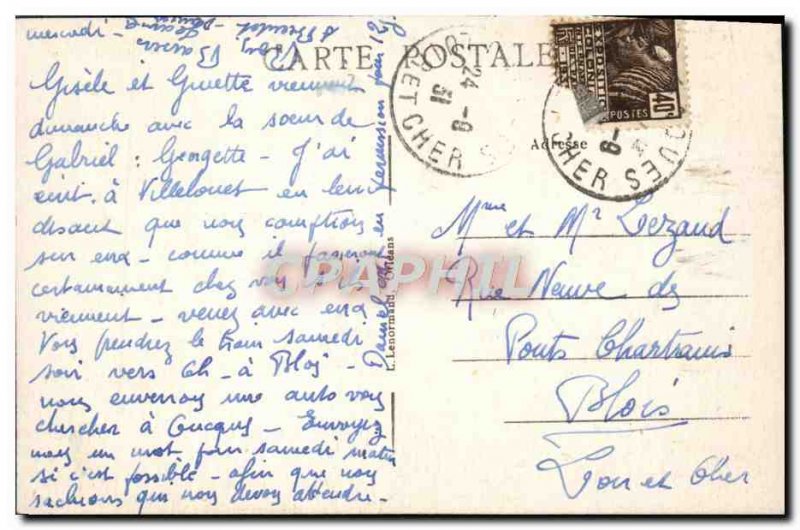 mercredi -
CARTE POSTALE
Gisèle et Ginette viennent
dimanche avec la soeur de
Gabriel : Georgette - J'ai
écrit à Villelouet en leur
disant que nous comptions
sur eux - comme ils passeront
certainement chez vous
viennent - venez avec eux
Vous prendrez le train samedi
soir vers 6h - à Blois -
nous enverrons une auto vous
chercher à Coucques - Envoyez
nous un mot pour samedi matin
si c'est possible - afin que nous
sachions qui nous devons attendre -
Daniel en permission pour
L. Lenormand, Orléans
Adresse
Mme et Mr Lezaud
Rue Neuve des
Ponts Chartrains
Blois
Loir et Cher
24 -9
31
ET CHER
CHER
POSTES
40c
CPAPHIL